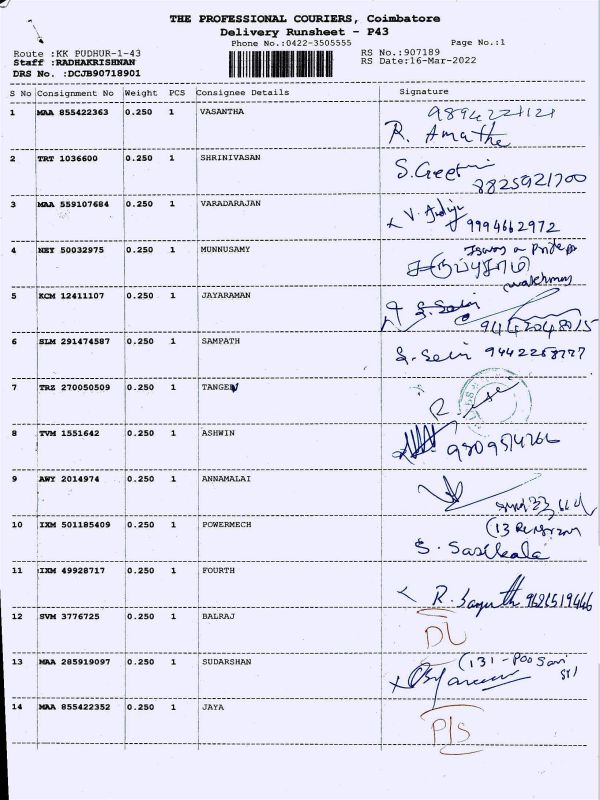 THE PROFESSIONAL COURIERS, Coimbatore
Delivery Runsheet - P43
Phone No.:0422-3505555 Page No.:1
Route :KK PUDHUR-1-43 RS No.:907189
Staff :RADHAKRISHNAN RS Date:16-Mar-2022
DRS No. :DCJB90718901
S No Consignment No Weight PCS Consignee Details Signature
1 MAA 855422363 0.250 1 VASANTHA
R. Amatha
2 TRT 1036600 0.250 1 SHRINIVASAN S. Geetha
8825921700
3 MAA 559107684 0.250 1 VARADARAJAN
9994662972
4 NEY 50032975 0.250 1 MUNNUSAMY
5 KCM 12411107 0.250 1 JAYARAMAN
6 SLM 291474587 0.250 1 SAMPATH
7 TRZ 270050509 0.250 1 TANGEV
8 TVM 1551642 0.250 1 ASHWIN
9 AWY 2014974 0.250 1 ANNAMALAI
10 IXM 501185409 0.250 1 POWERMECH
S. Sasikala
11 IXM 49928717 0.250 1 FOURTH
12 SVM 3776725 0.250 1 BALRAJ DL
13 MAA 285919097 0.250 1 SUDARSHAN
14 MAA 855422352 0.250 1 JAYA P/S